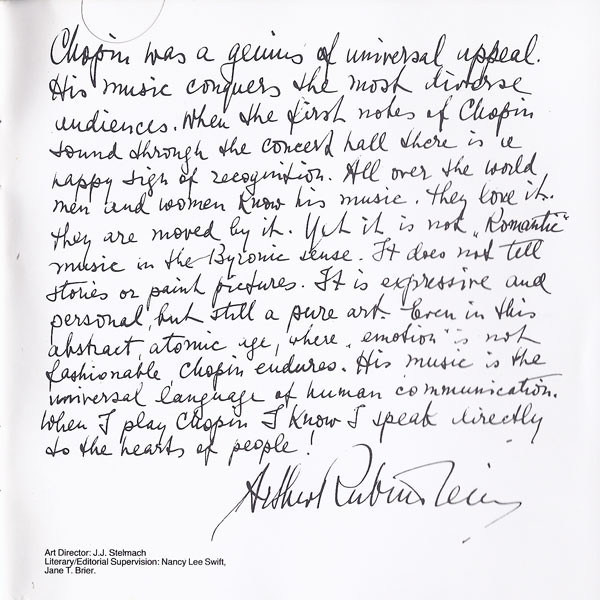 Chopin was a genius of universal appeal.
His music conquers the most diverse
audiences. When the first notes of Chopin
sound through the concert hall there is a
happy sign of recognition. All over the world
men and women know his music. They love it.
They are moved by it. Yet it is not „Romantic"
music in the Byronic sense. It does not tell
stories or paint pictures. It is expressive and
personal, but still a pure art. Even in this
abstract, atomic age, where „emotion" is not
fashionable Chopin endures. His music is the
universal language of human communication.
When I play Chopin I know I speak directly
to the hearts of people!
Arthur Rubinstein
Art Director: J.J. Stelmach
Literary/Editorial Supervision: Nancy Lee Swift,
Jane T. Brier.